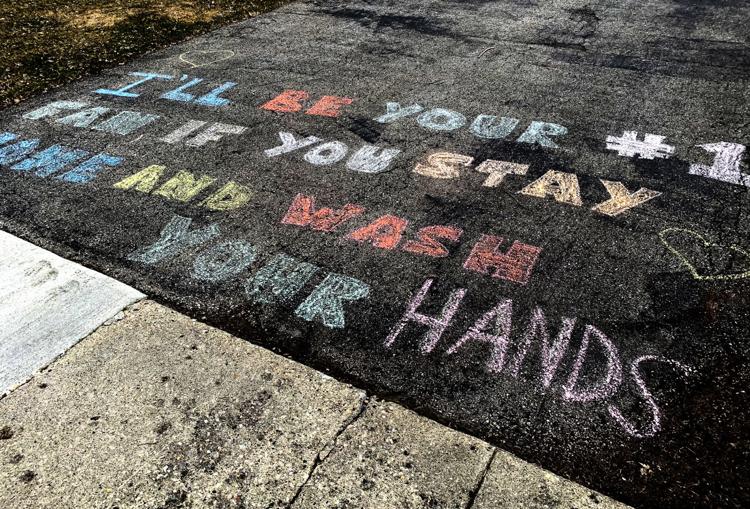 I'LL BE YOUR #1
FAN IF YOU STAY
HOME AND WASH
YOUR HANDS